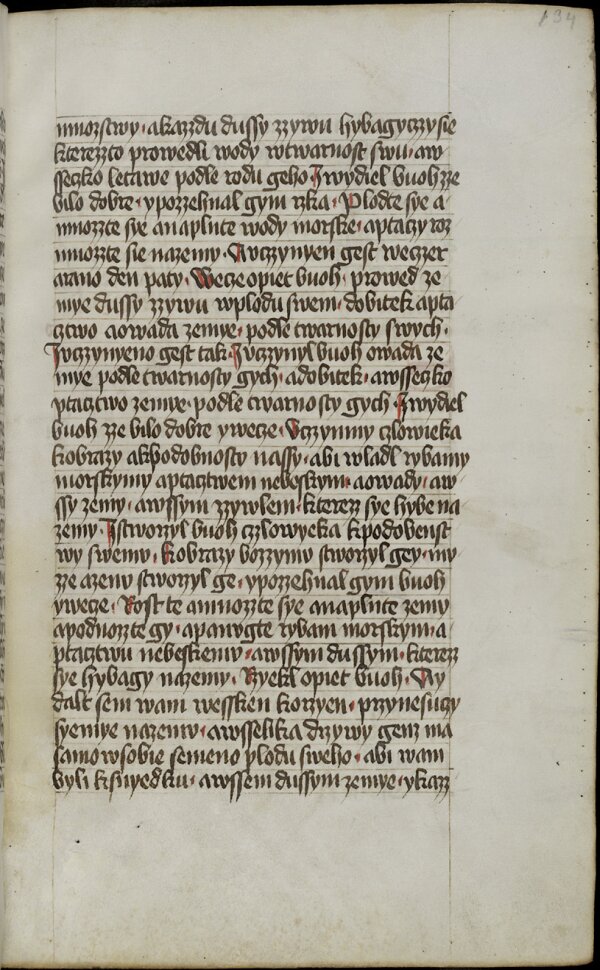 134
mnozstwy · akazzdu dussy zzywu hybagyczzysie
kterezzto prowedli wody wtwarnost swu · aw
sseczko letawe podle rodu geho I wydiel buoh zze
bilo dobre · ypozzehnal gym rzka · Plodte sye a
mnozzte sye anaplnte wody morske · aptaczy roz
mnozzte sie nazemy · Auczynyen gest weczzer
arano den paty · Wecze opiet buoh · prowed ze
mye dussy zzywu wplodu swem · dobitek apta
cztwo aowada zemye · podle twarnosty swych ·
Iuczynyeno gest tak · Iuczzynyl buoh owada ze
mye podle twarnosty gych · adobitek · awsseczko
ptacztwo zemye · podle twarnosty gych · Iwydiel
buoh zze bilo dobre ywecze · Uczynmy czlowieka
kobrazy akpodobnosty nassy · abi wladl rybamy
morskymy aptacztwem nebeskym · aowady · aw
ssy zemy · awssym zzywlem · kterez sye hybe na
zemy · Istworzyl buoh czlowyeka kpodobenst
wy swemu · kobrazy bozzymu stworzyl gey · mu
zze azenu stworzyl ge · ypozzehnal gym buoh
ywecze · Rost te amnozzte sye anaplnte zemy
apodnozzte gy · apanugte rybam morskym · a
ptacztwu nebeskemu · awssym dussym · kterezz
sye hybagy nazemy · Rzyekl opiet buoh · Ay
dalt sem wam wessken korzyen · przynesuczy
syemye nazemi · awsselika drzywy genz ma
samo wsobie semeno plodu sweho · abi wam
byli ksnyedku · awssem dussym zemye · ykazz